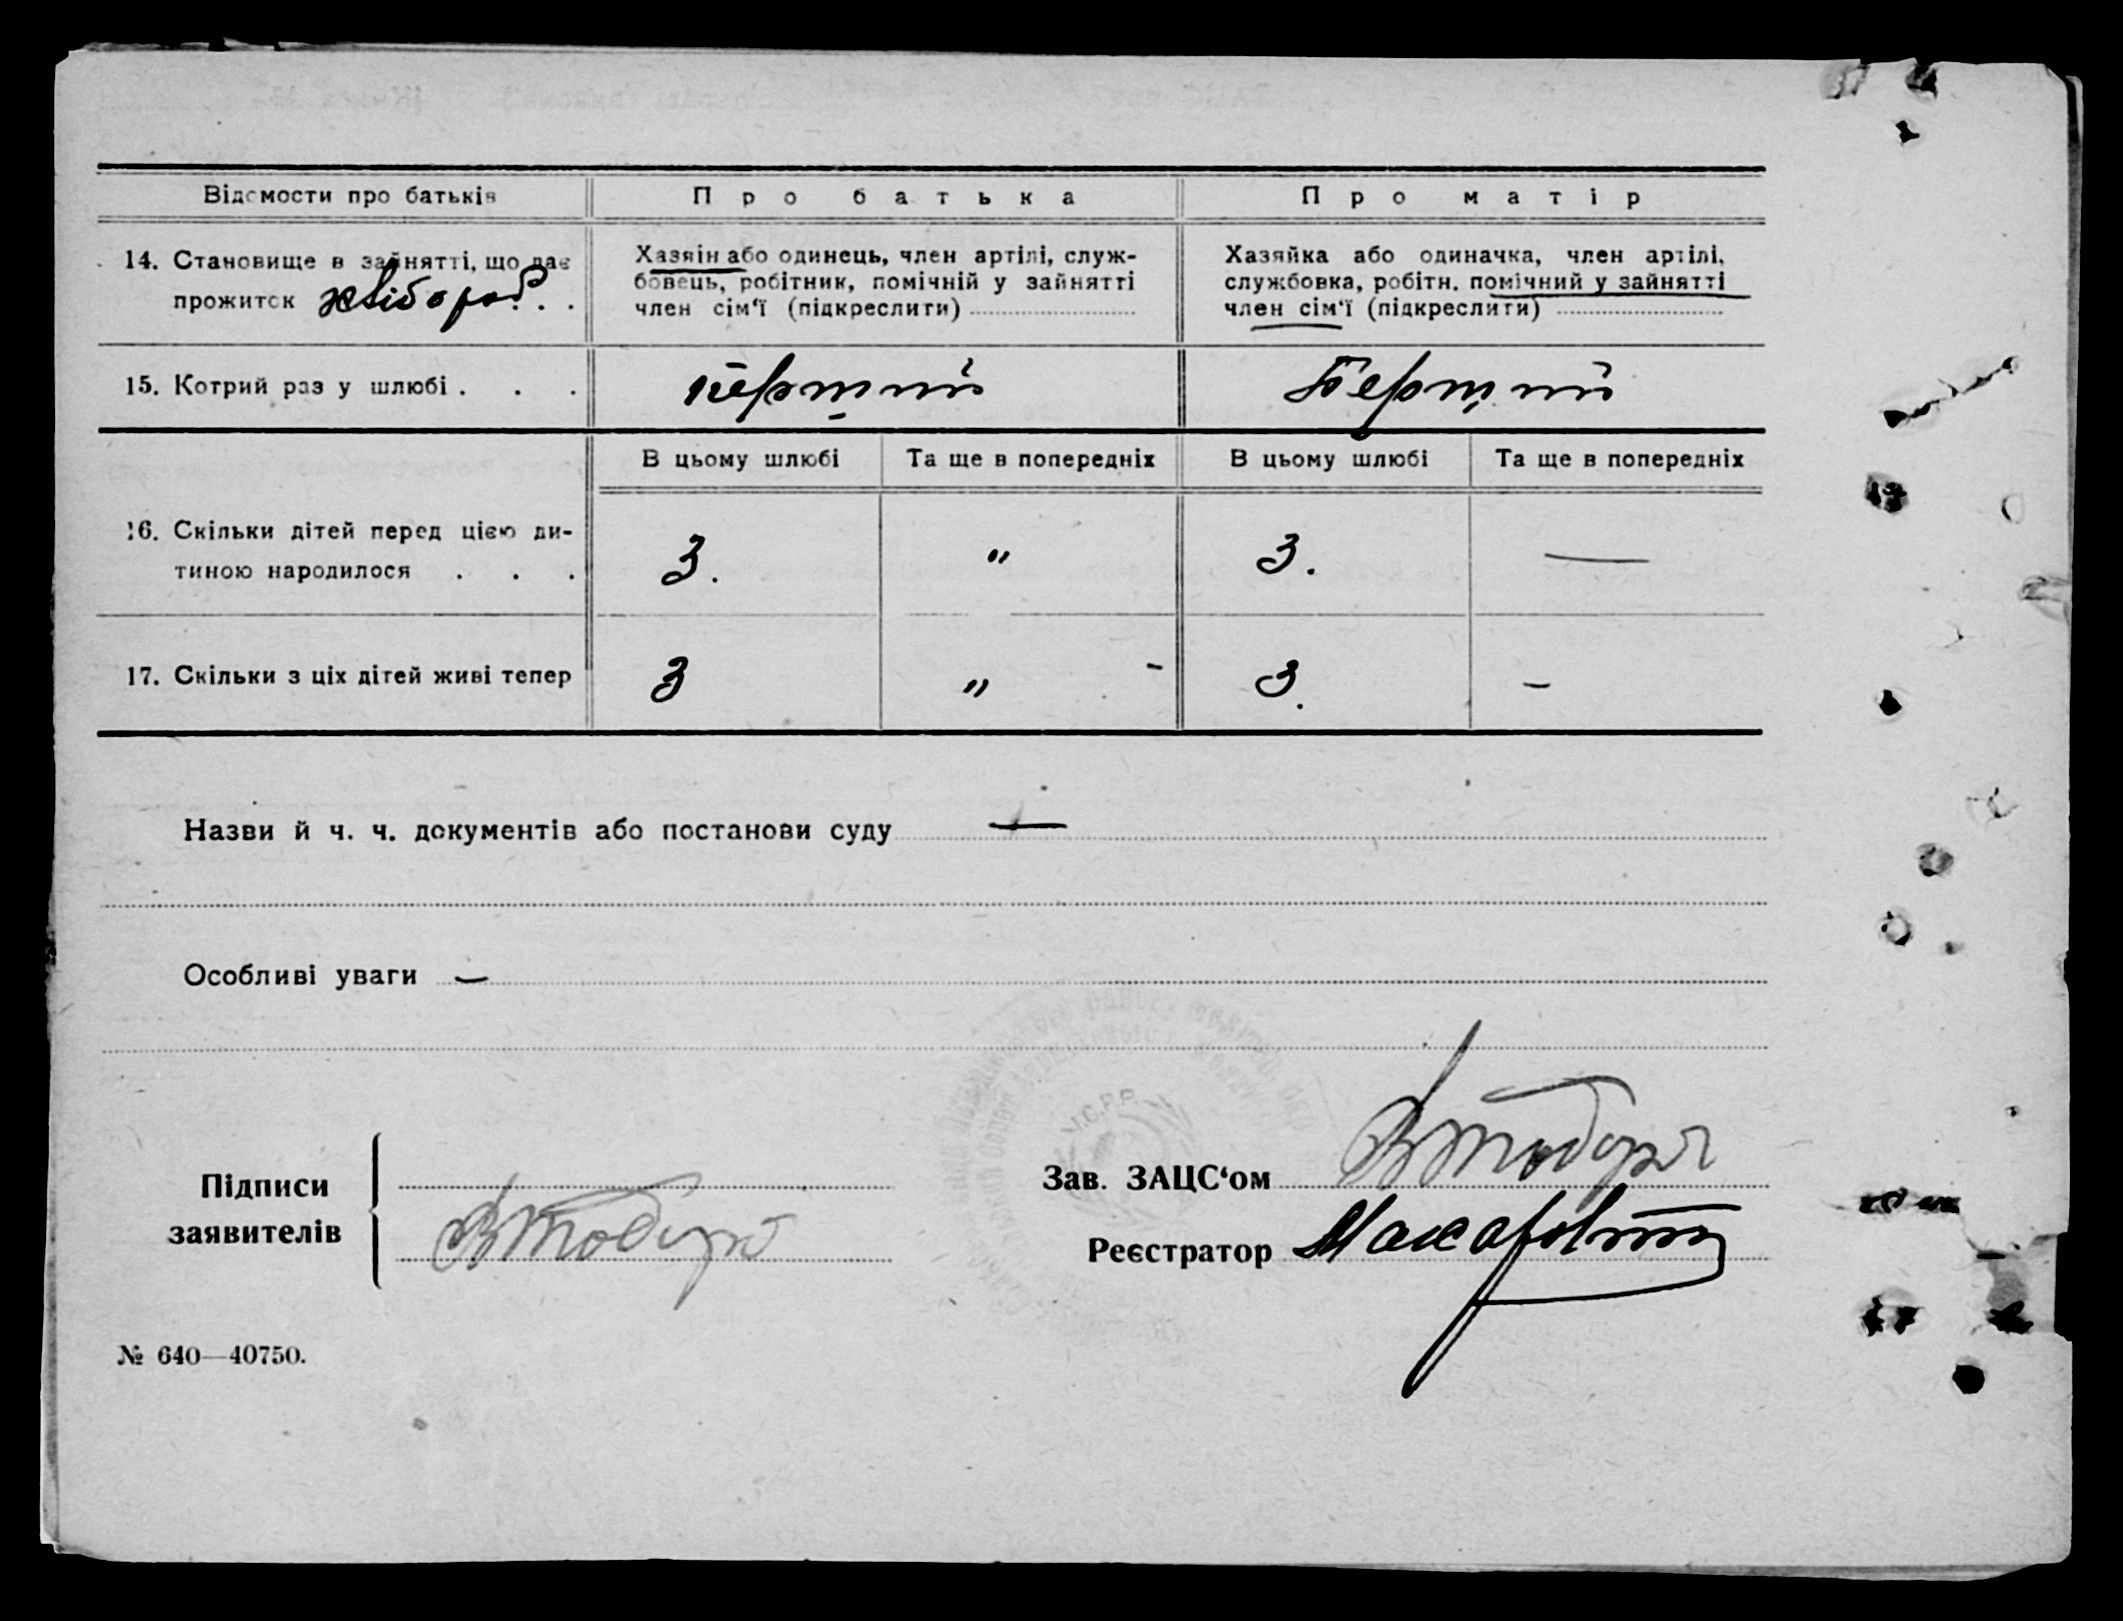 Відомости про батьків
Про батька
Про матір
14. Становище в зайнятті, що дає
прожиток хлібороб. .
Хазяін або одинець, член артілі, служ-
бовець, робітник, помічній у зайнятті
член сім'ї (підкреслити)
Хазяйка або одиначка, член артілі,
службовка, робітн. помічний у зайнятті
член сім'ї (підкреслити)
15. Котрий раз у шлюбі . . .
перший
Перший
В цьому шлюбі
Та ще в попередніх
В цьому шлюбі
Та ще в попередніх
16. Скільки дітей перед цією ди-
тиною народилося . . .
3.
"
3.
—
17. Скільки з ціх дітей живі тепер
3
" -
3.
-
Назви й ч. ч. документів або постанови суду —
Особливі уваги —
У.С.Р.Р.
Підписи
заявителів
Зав. ЗАЦС‘ом
Реєстратор
№ 640—40750.